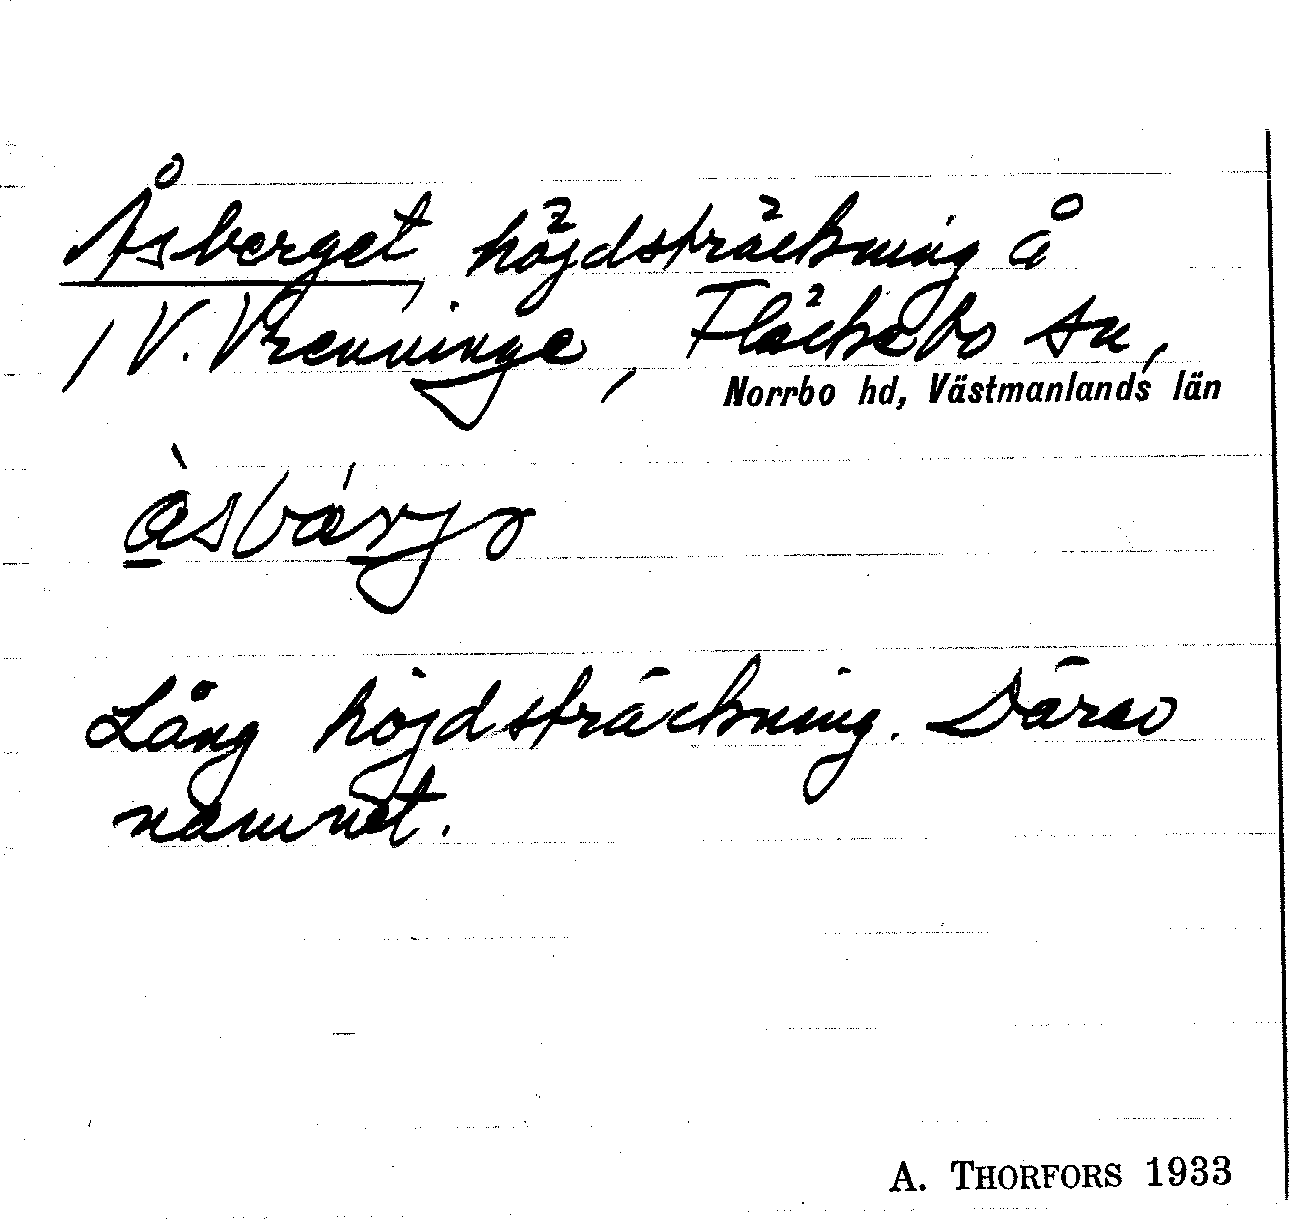 Åsberget, höjdsträckning å
V. Vrenninge, Fläckebo sn,
Norrbo hd, Västmanlands län
Lång höjdsträckning. Därav
namnet.
A. THORFORS 1933